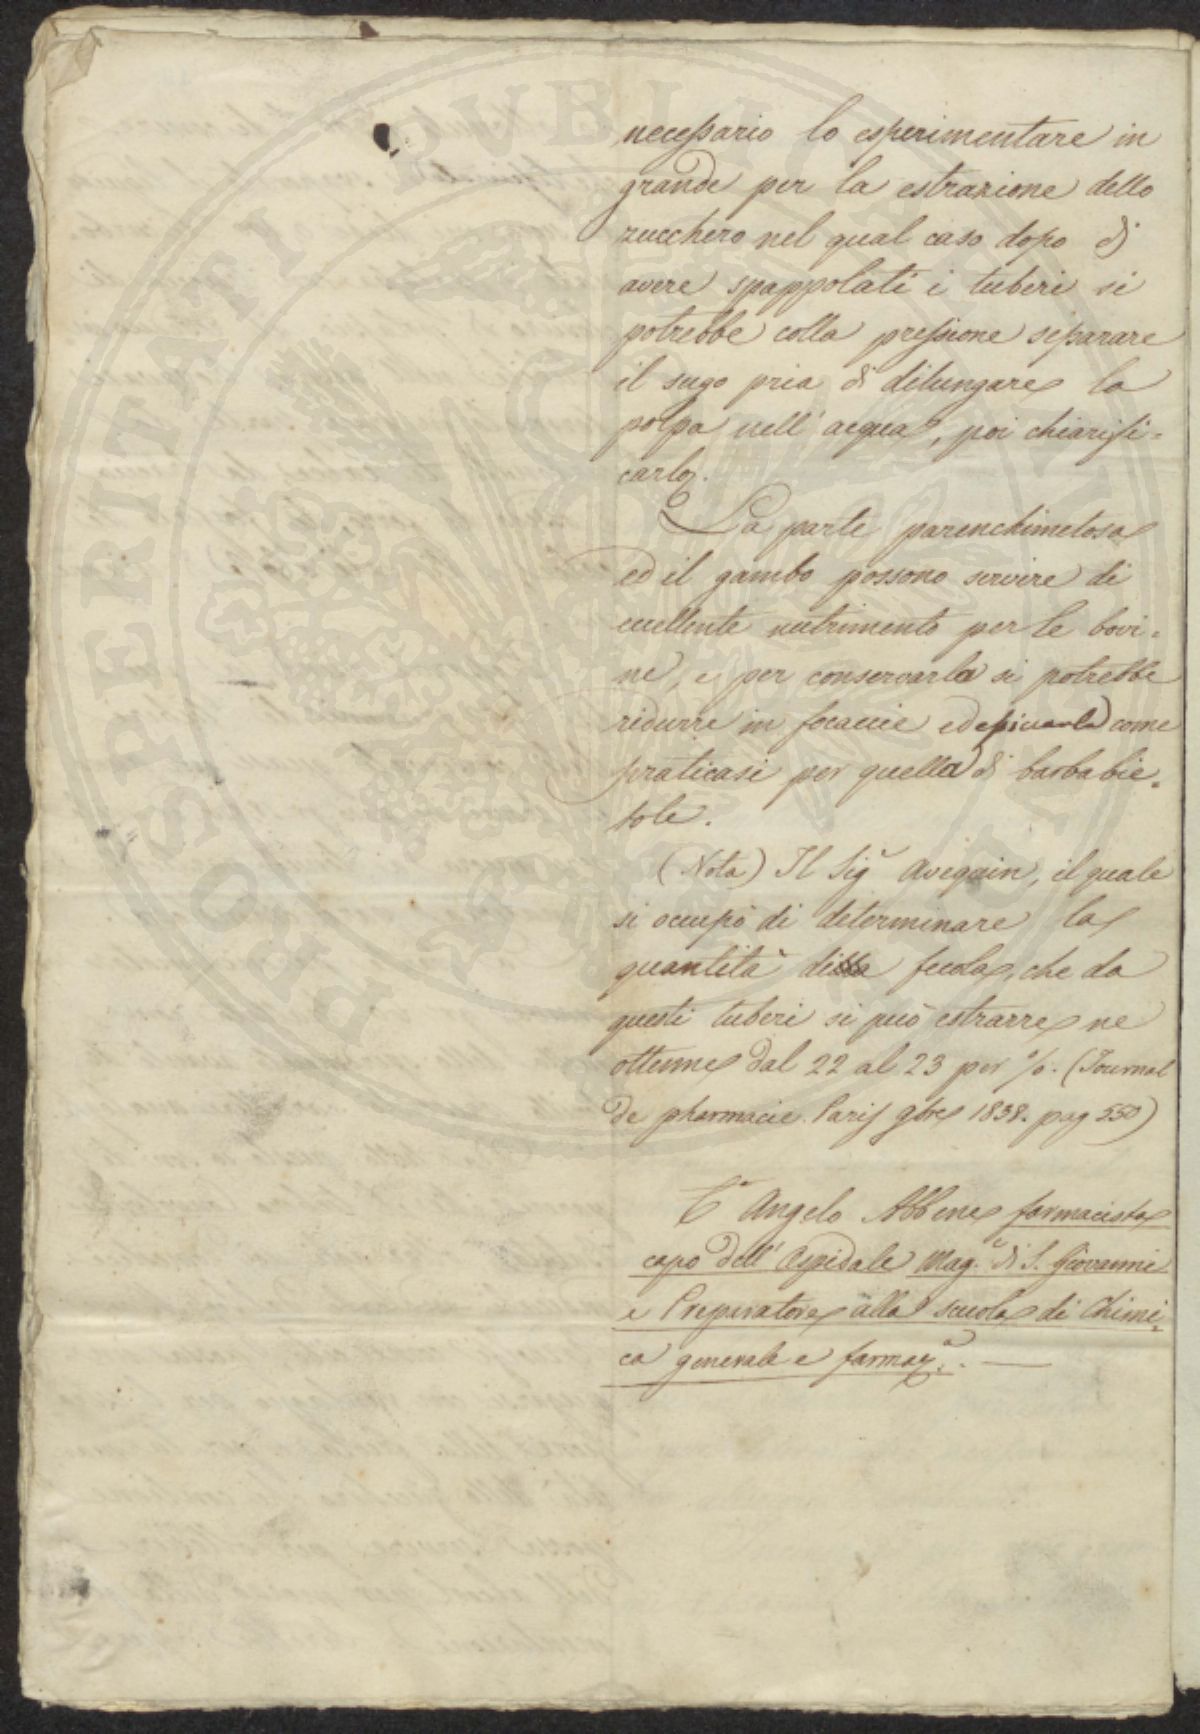 necessario lo esperimentare in
grande per la estrazione dello
zucchero nel qual caso dopo di
avere spappolati i tuberi si
potrebbe colla pressione separare
il sugo pria di dilungare la
polpa nell' acqua, poi chiarifi-
carlo.
La parte parenchimetosa
ed il gambo possono servire di
eccellente nutrimento per le bovi-
ne, e per conservarla si potrebbe
ridurre in focaccie ed come
praticasi per quella di barbabie-
tole.
(Nota) Il Sigr Avequin, il quale
si occupò di determinare la
quantità della fecola, che da
questi tuberi si può estrarre ne
ottenne dal 22 al 23 per %. (Journal
de pharmacie. Paris 9bre 1838. pag 550)
Angelo Abbene farmacista
capo dell' Ospedale Mag.e di S. Giovanni
e Preparatore alla scuola di Chimi-
ca generale e farmaz.a. —
PROSPERITATI PUBLICAE